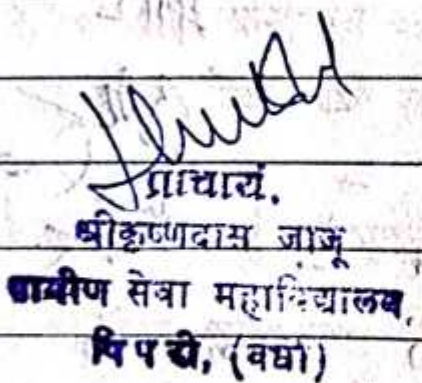 प्राचार्य.
श्रीकृष्णदास जाजू
ग्रामीण सेवा महाविद्यालय,
पिपरी, (वर्धा)